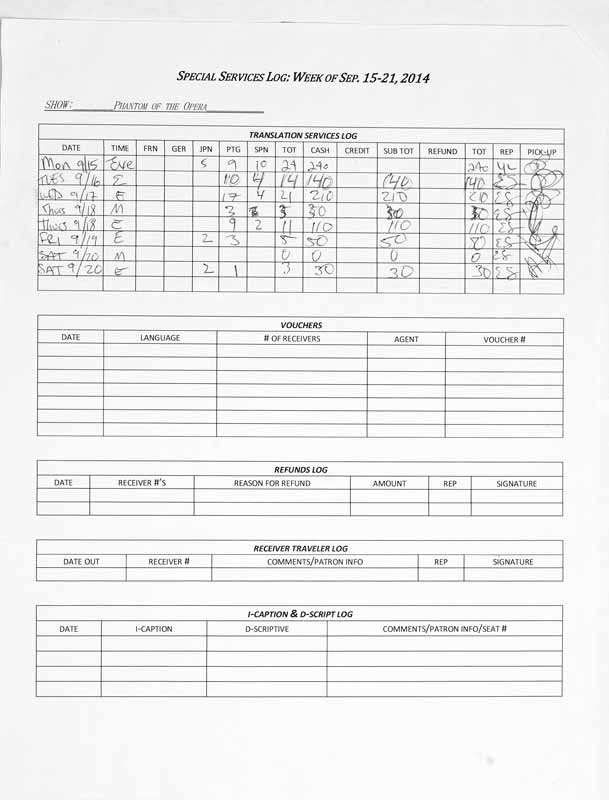 SPECIAL SERVICES LOG: WEEK OF SEP. 15-21, 2014
SHOW: PHANTOM OF THE OPERA
TRANSLATION SERVICES LOG
DATE TIME FRN GER JPN PTG SPN TOT CASH CREDIT SUB TOT REFUND TOT REP PICK-UP
Mon 9/15 Eve 5 9 10 24 240 240 YL
TUES 9/16 E 10 4 14 140 140 140 ES
WED 9/17 E 17 4 21 210 210 210 ES
Thurs 9/18 M 3 3 30 30 30 ES
Thurs 9/18 E 9 2 11 110 110 110 ES
FRI 9/19 E 2 3 5 50 50 ES
SAT 9/20 M 0 0 0 0 ES
SAT 9/20 E 2 1 3 30 30 30 ES
VOUCHERS
DATE LANGUAGE # OF RECEIVERS AGENT VOUCHER #
REFUNDS LOG
DATE RECEIVER #'S REASON FOR REFUND AMOUNT REP SIGNATURE
RECEIVER TRAVELER LOG
DATE OUT RECEIVER # COMMENTS/PATRON INFO REP SIGNATURE
I-CAPTION & D-SCRIPT LOG
DATE I-CAPTION D-SCRIPTIVE COMMENTS/PATRON INFO/SEAT #